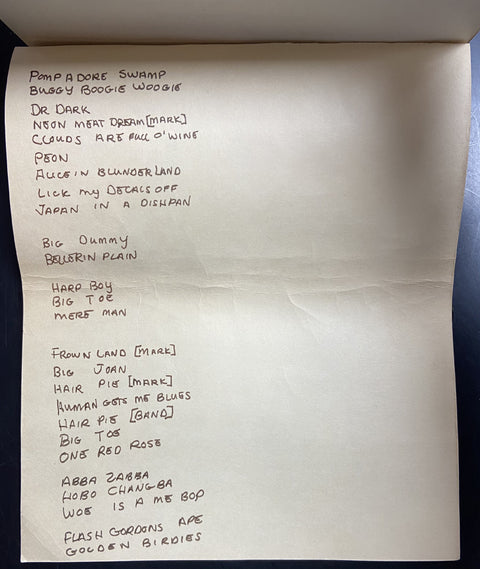 POMPADORE SWAMP
BUGGY BOOGIE WOOGIE
DR DARK
NEON MEAT DREAM [MARK]
CLOUDS ARE FULL O' WINE
PEON
ALICE IN BLUNDERLAND
LICK MY DECALS OFF
JAPAN IN A DISHPAN
BIG DUMMY
BELLERIN PLAIN
HARP BOY
BIG TOE
MERE MAN
FROWN LAND [MARK]
BIG JOAN
HAIR PIE [MARK]
HUMAN GETS ME BLUES
HAIR PIE [BAND]
BIG TOE
ONE RED ROSE
ABBA ZABBA
HOBO CHANGBA
WOE IS A ME BOP
FLASH GORDONS APE
GOLDEN BIRDIES